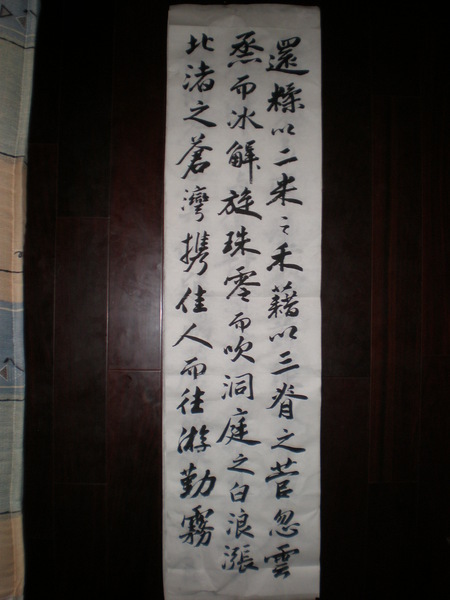 還糅以二米之禾藉以三脊之菅忽雲
烝而冰解旋珠零而吹洞庭之白浪漲
北渚之蒼灣携佳人而往游勤霧